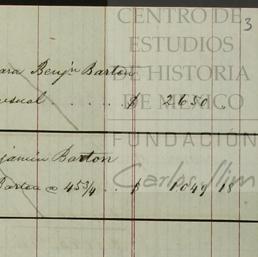 CENTRO DE
ESTUDIOS
DE HISTORIA
DE MEXICO
FUNDACIÓN
Carlos Slim
3
para Benjn Barton
.... $ 2650 ..
Benjamin Barton
@ 45¾ .. $ 1049 18